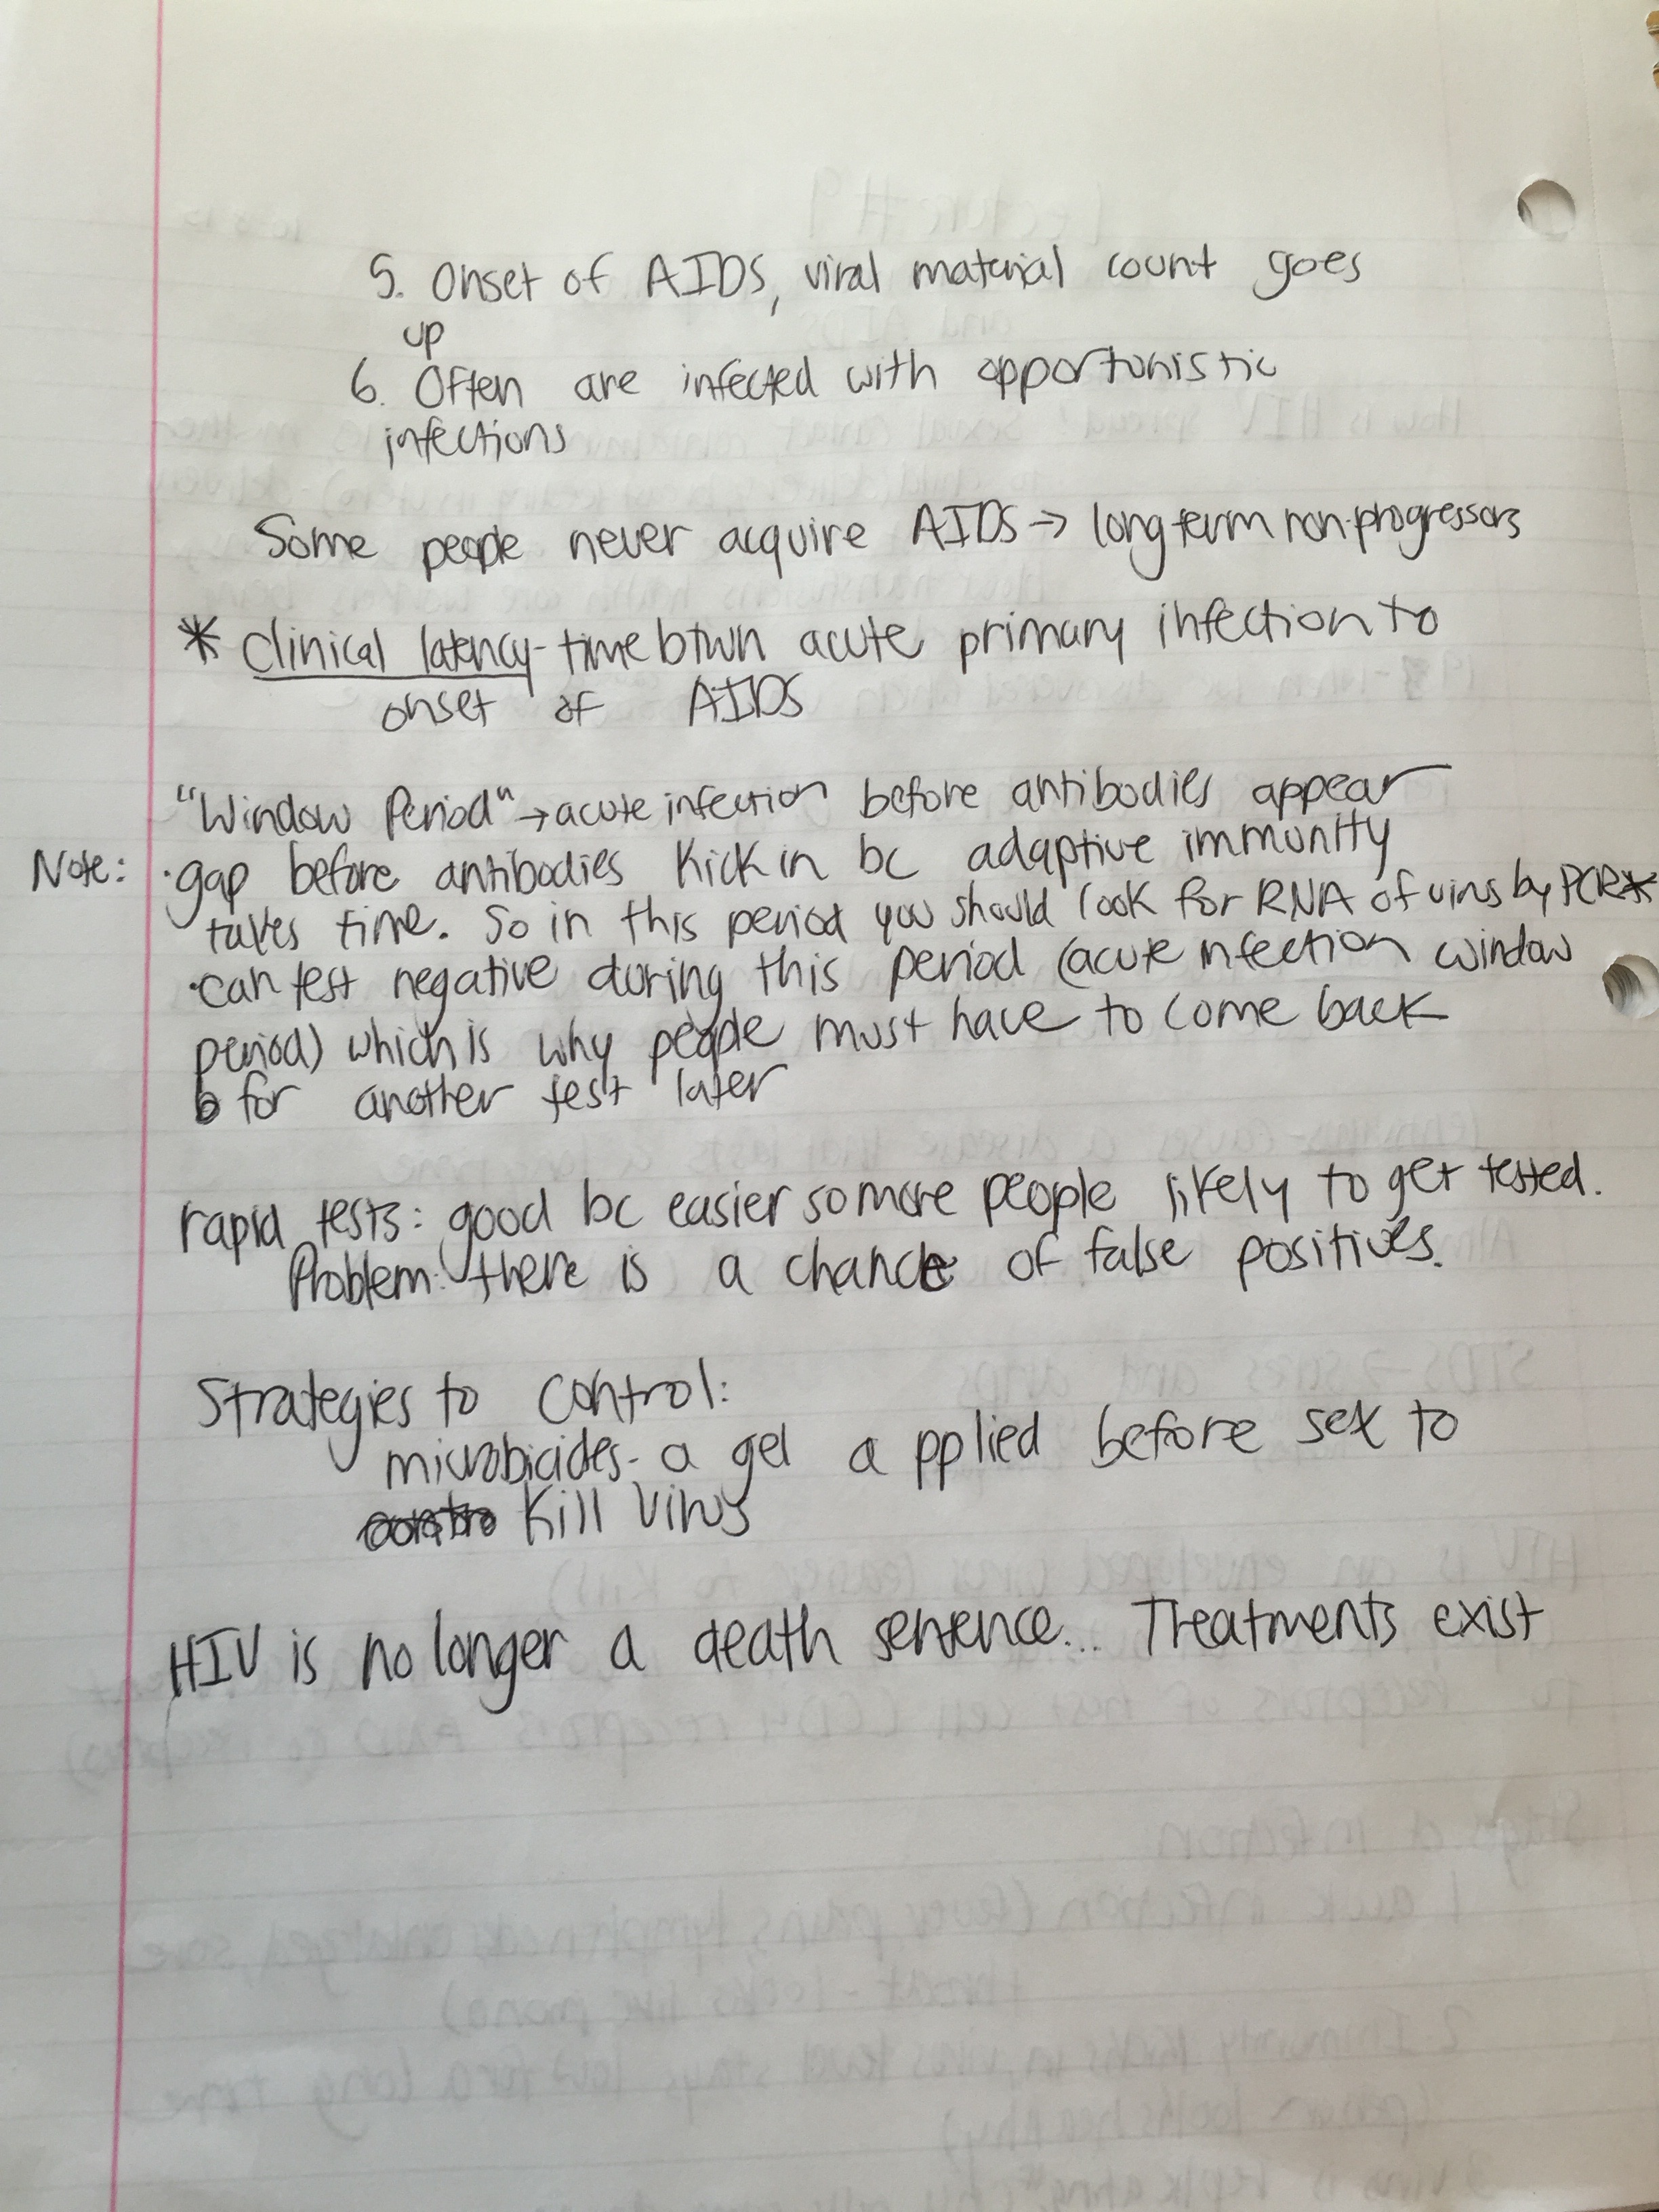 5. Onset of AIDS, viral material count goes
up
6. Often are infected with opportunistic
infections
Some people never acquire AIDS → long term non-progressors
* clinical latency - time btwn acute primary infection to
onset of AIDS
"Window Period" → acute infection before antibodies appear
Note: · gap before antibodies kick in bc adaptive immunity
takes time. So in this period you should look for RNA of virus by PCR*
· can test negative during this period (acute infection window
period) which is why people must have to come back
for another test later
rapid tests: good bc easier so more people likely to get tested.
Problem: there is a chance of false positives.
Strategies to control:
microbicides - a gel applied before sex to
kill virus
HIV is no longer a death sentence... Treatments exist